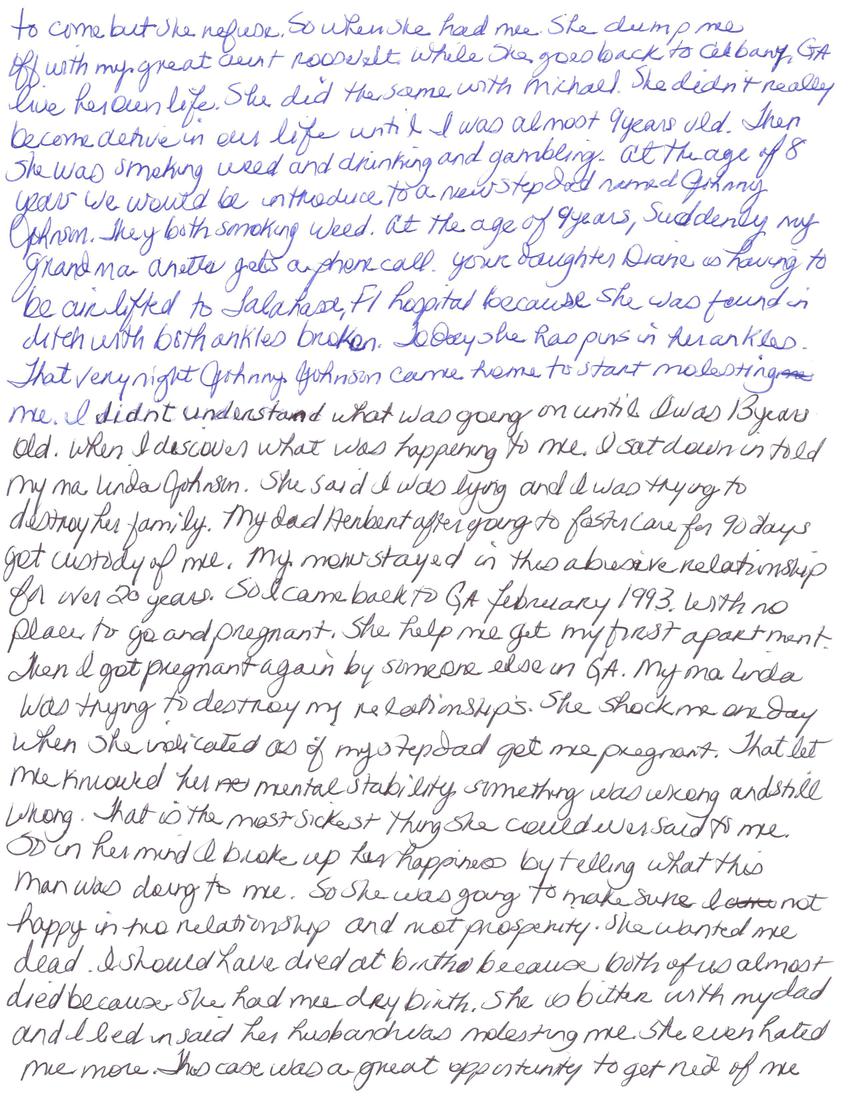 to come but she refuse. So when she had me. She dump me
off with my great aunt roosvelt. while she goes back to Albany, GA
live her own life. She did the same with Michael. She didn't really
become active in our life until I was almost 9 years old. Then
she was smoking weed and drinking and gambling. at the age of 8
years we would be introduce to a new stepdad named Johnny
Johnson. They both smoking weed. at the age of 9 years, Suddenly my
grandma anetta gets a phone call. your daughter Diane is having to
be air lifted to Talahase, Fl hospital because she was found in
ditch with both ankles broken. ToDay she has pins in her ankles.
That very night Johnny Johnson came home to start molesting me
me. I didn't understand what was going on until I was 13 years
old. when I discover what was happening to me. I sat down in told
my ma Linda Johnson. She said I was lying and I was trying to
destroy her family. My dad Herbert after going to foster care for 90 days
got custody of me. My mom stayed in this abusive relationship
for over 20 years. So I came back to GA february 1993. with no
place to go and pregnant. She help me get my first apartment.
Then I got pregnant again by someone else in GA. My ma Linda
was trying to destroy my relationship's. She shock me one day
when she indicated as if my stepdad got me pregnant. That let
me knowed her mental stability something was wrong and still
wrong. That is the most sickest thing she could ever said to me.
So in her mind I broke up her happiness by telling what this
man was doing to me. So she was going to make sure I not
happy in no relationship and not prosperity. She wanted me
dead. I should have died at birth because both of us almost
died because she had me dry birth. She is bitter with my dad
and I lied in said her husband was molesting me. She even hated
me more. This case was a great opportunity to get rid of me